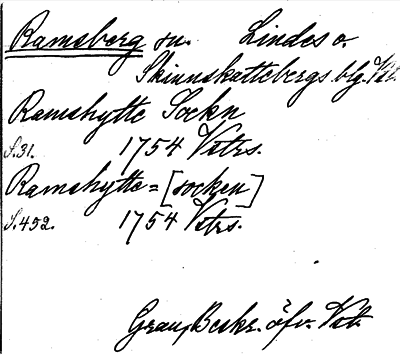 Ramsberg sn. Lindes o.
Skinnskattebergs blg. Vstm.
Ramshytte Sockn
S.31. 1754 Vstrs.
Ramshytte=[socken]
S.452. 1754 Vstrs.
Grau, Beskr. öfv. Vstm.